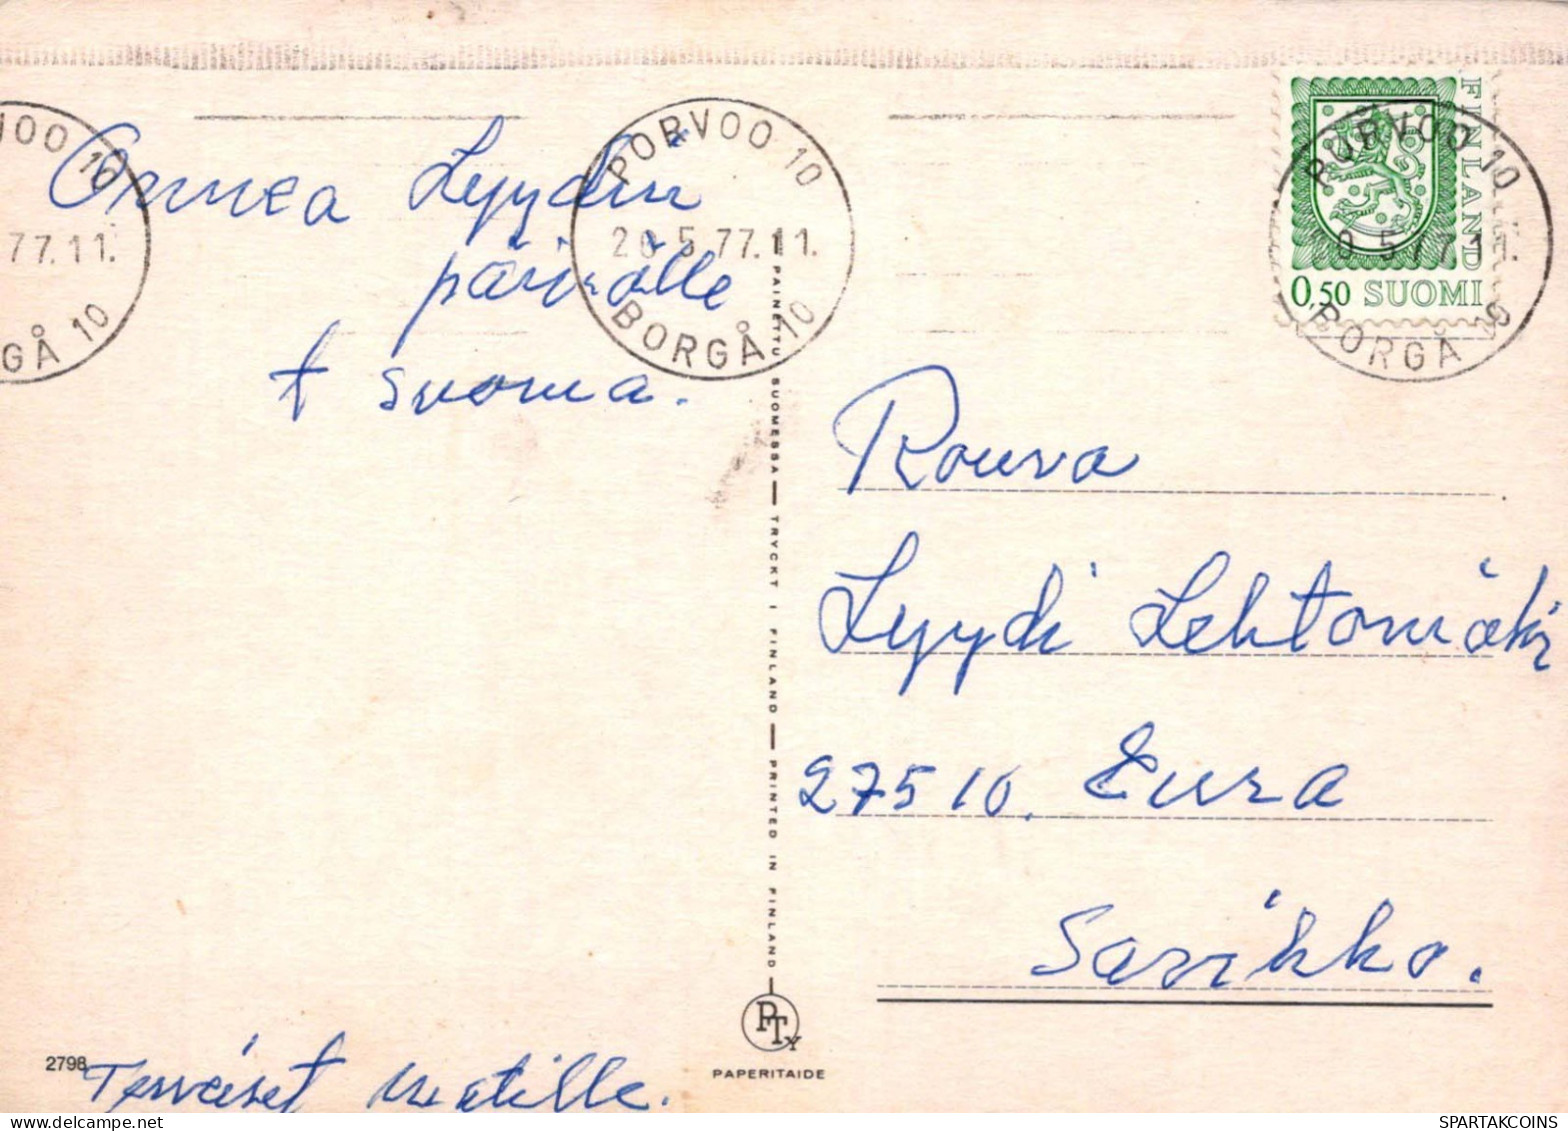 VOO 10
77.11.
GÅ 10
PORVOO 10
20.5.77.11.
BORGÅ 10
FINLAND
0,50 SUOMI
PORVOO 10
0.5.77.11.
BORGÅ 10
Onnea Lyydin
päivälle
t Suoma.
Rouva
Lyydi Lehtomäki
27510. Eura
Sorkko.
PAINETTU SUOMESSA — TRYCKT I FINLAND — PRINTED IN FINLAND
PTY
PAPERITAIDE
2798
Terveiset Matille.
SPARTAKCOINS